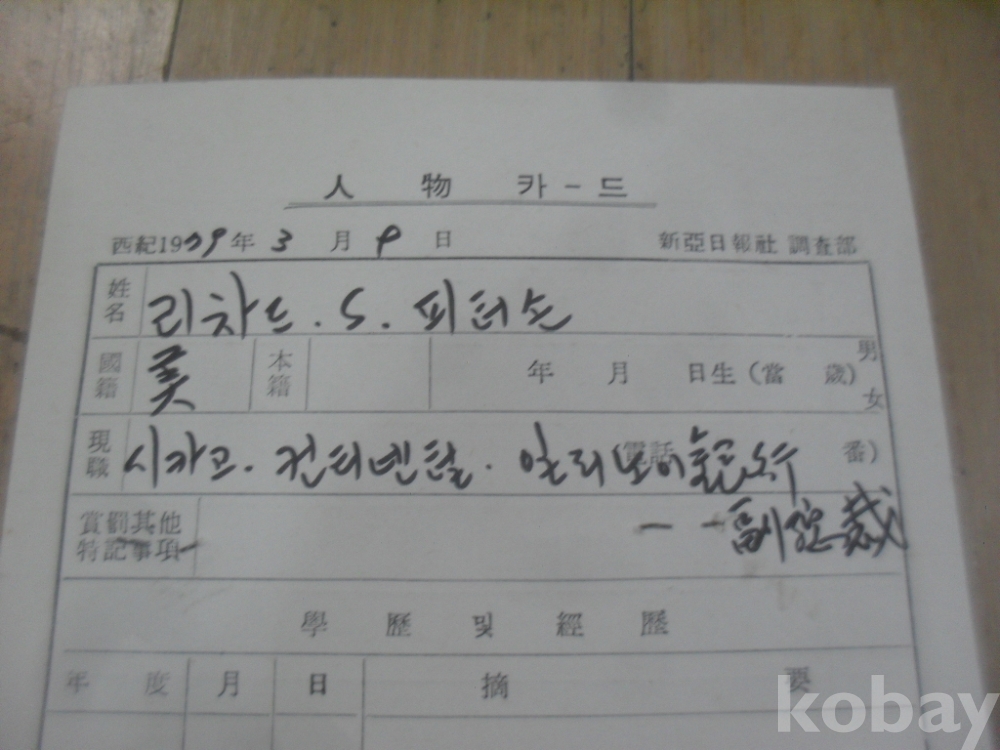 人物카-드
西紀1979年 3月 9日 新亞日報社 調査部
姓名 리차드. S. 피터슨
國籍 美 本籍 年 月 日生 (當 歲) 男 女
現職 시카고. 컨티넨탈. 일리노이 銀行 (電話 番)
賞罰其他 特記事項 — — 副總裁
學歷 및 經歷
年度 月 日 摘要
kobay